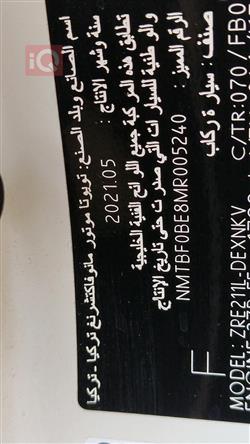 iQ
اسم الصانع وبلد الصنع: تويوتا موتور مانوفاكتشرنغ تركيا - تركيا
سنة وشهر الانتاج: 2021.05
تطابق هذه المركبة جميع اللوائح الفنية الخليجية
والوطنية للسيارات التي صدرت حتى تاريخ الانتاج
الرقم المميز: NMTBF0BE8MR005240
صنف: سيارة ركاب
F
C/TR:070/FB0
MODEL:ZRE211L-DEXNKV